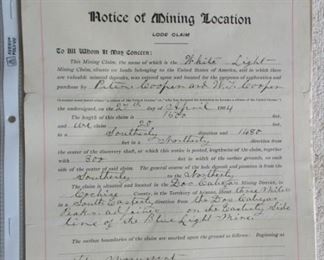 Notice of Mining Location
LODE CLAIM
To All Whom It May Concern:
This Mining Claim, the name of which is the White Light
Mining Claim, situate on lands belonging to the United States of America, and in which there
are valuable mineral deposits, was entered upon and located for the purpose of exploration and
purchase by Peter Cooper and W. Cooper
the undersigned on the 2nd day of April
The length of this claim is 1500
and we claim 20
Southerly direction and 1480
feet in a Northerly
the center of the discovery shaft, at which this notice is posted, lengthwise of the claim, together
with 300 feet in width of the surface grounds, on each
side of the center of said claim. The general course of the lode deposit and premises is from the
Southerly to the Northerly
The claim is situated and located in the Dos Cabezas Mining District, in
Cochise County, in the Territory of Arizona, about Three Miles
in a South Easterly direction from the Dos Cabezas
Peaks on the Easterly Side
line of the Blue Light Mine
The surface boundaries of the claim are marked upon the ground as follows: Beginning at
Monument